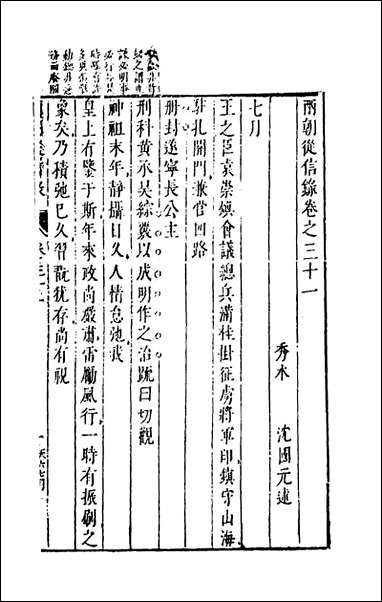 兩朝從信錄卷之三十一
秀水　沈國元述
七月
王之臣袁崇煥會議總兵滿桂掛征虜將軍印鎮守山海
駐扎關門兼管四路
册封遂寧長公主
刑科黃承昊綜覈以成明作之治疏曰切觀
神祖末年靜攝日久人情怠弛我
皇上有鑒于斯年來政尚嚴肅雷勵風行一時有振刷之
象矣乃積弛已久習翫猶存尚有視